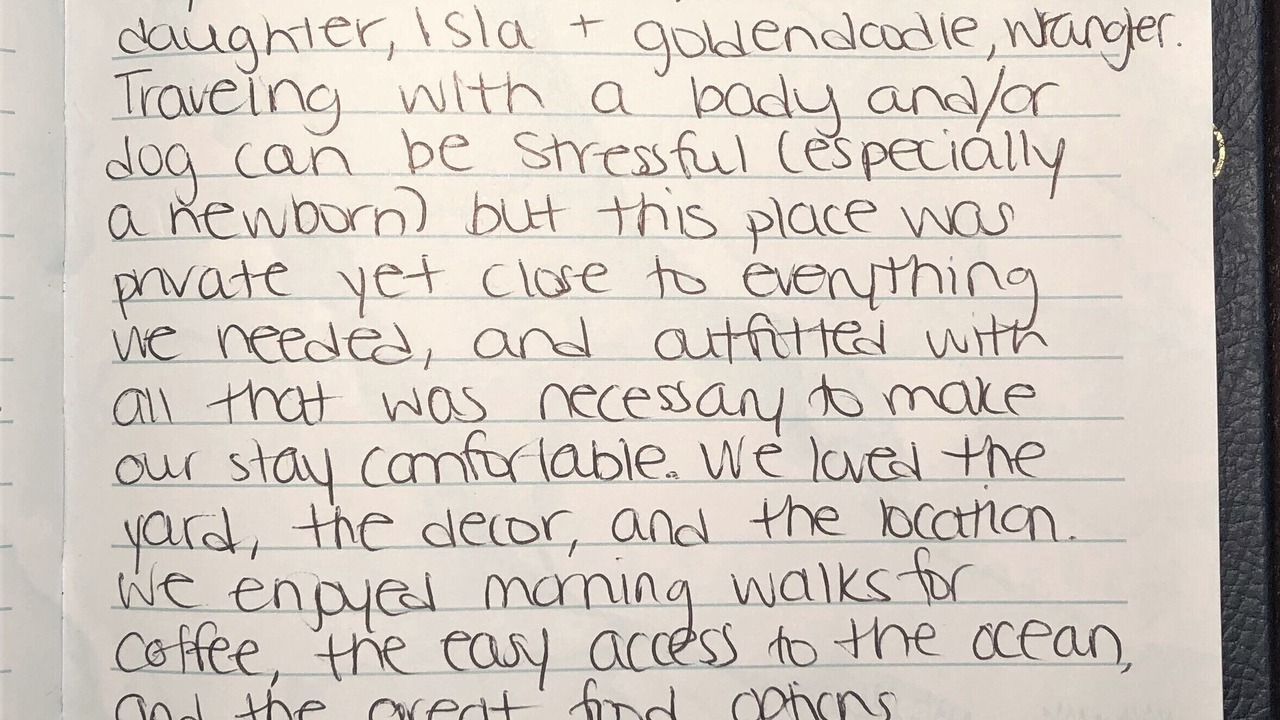 daughter, Isla + goldendoodle, Wrangler.
Traveling with a baby and/or
dog can be stressful (especially
a newborn) but this place was
private yet close to everything
we needed, and outfitted with
all that was necessary to make
our stay comfortable. We loved the
yard, the decor, and the location.
We enjoyed morning walks for
coffee, the easy access to the ocean,
and the great food options